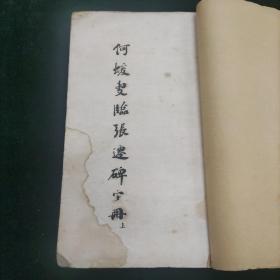 何蝯叟臨張遷碑字冊上